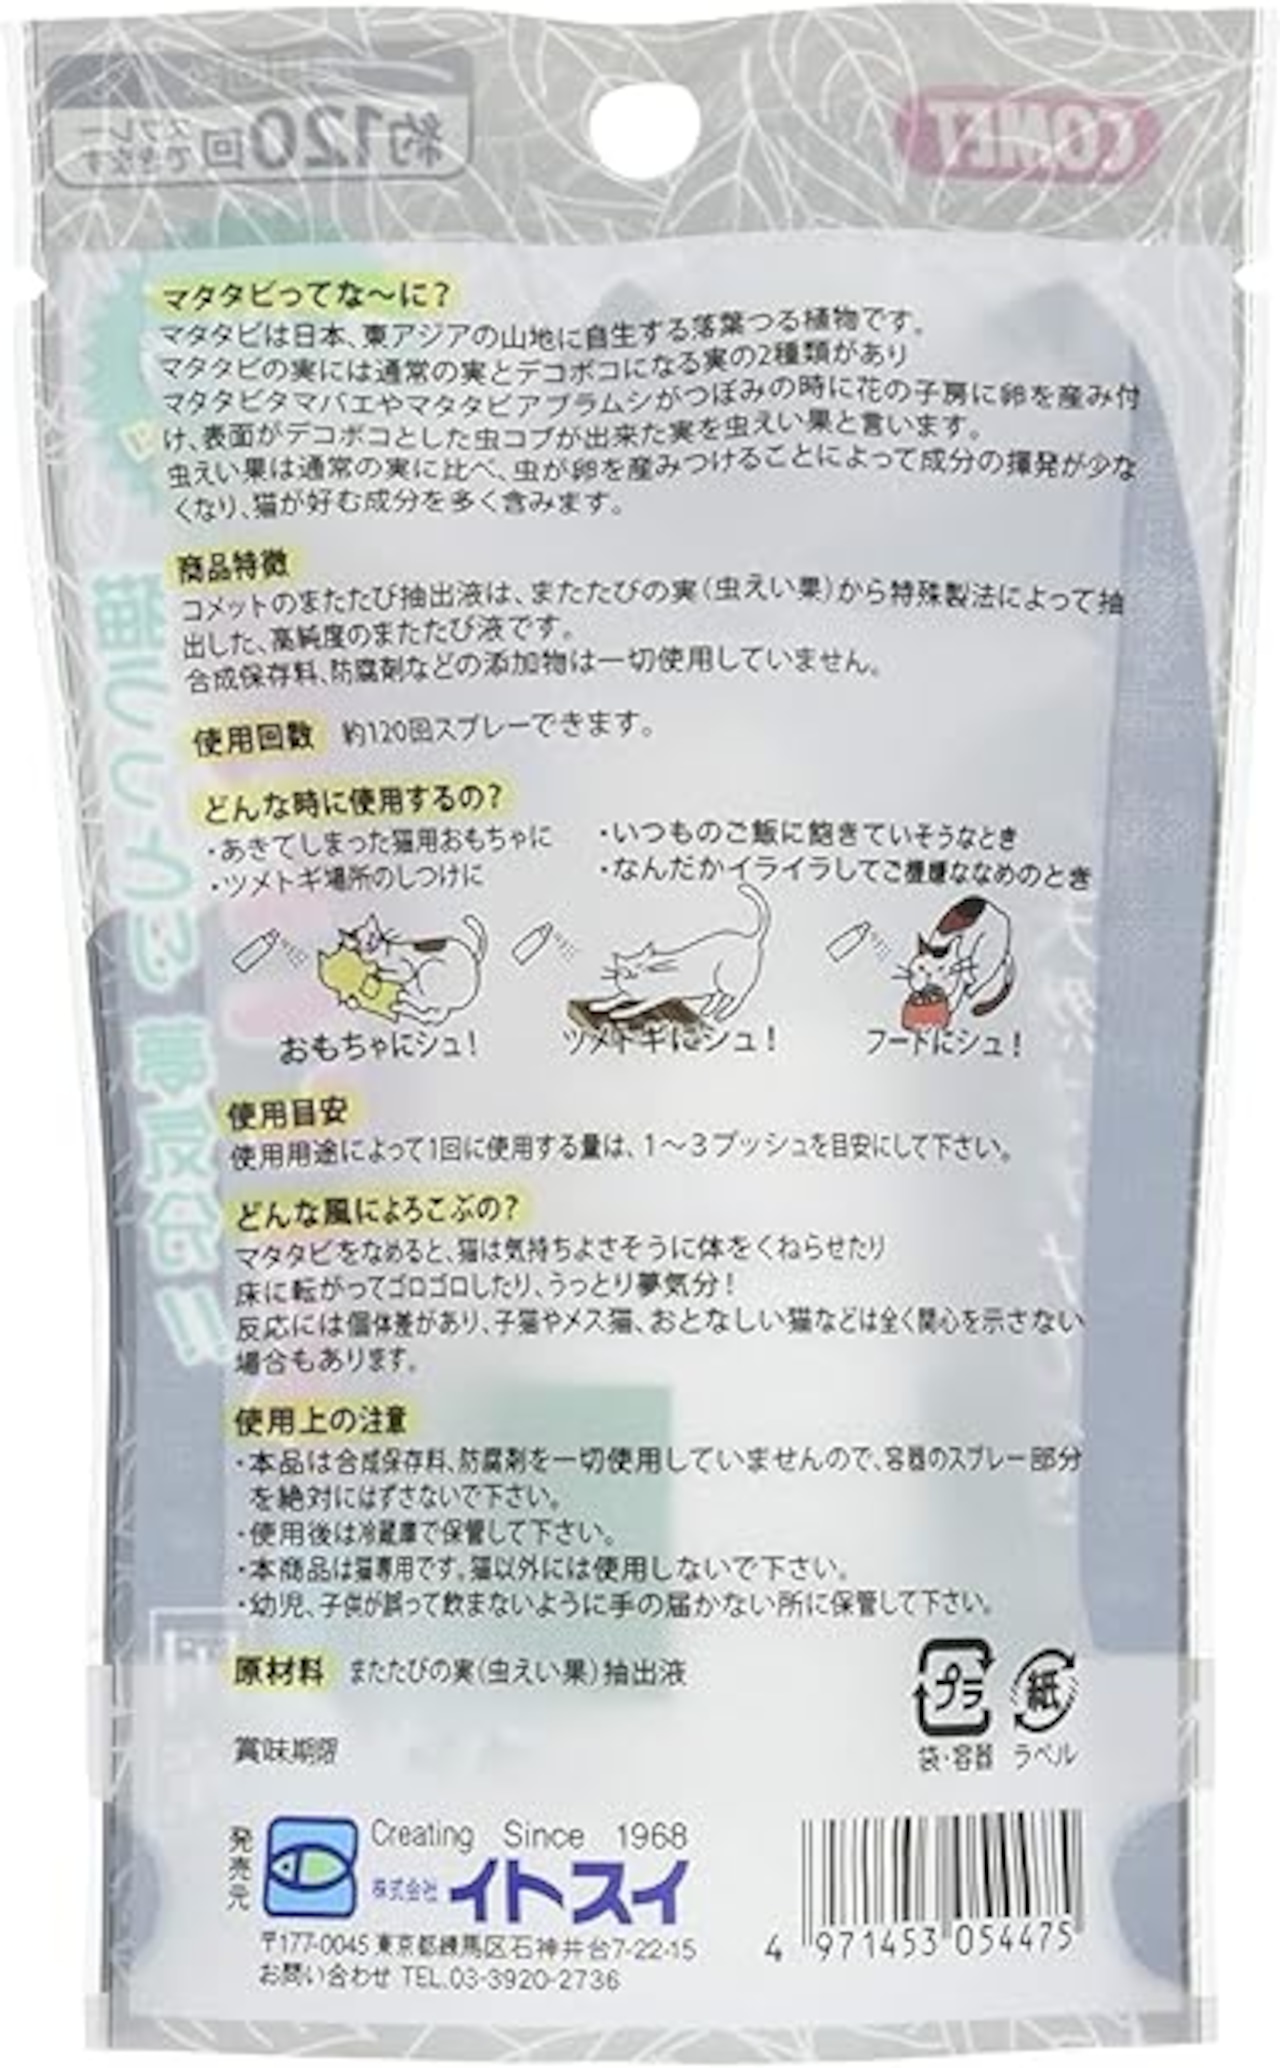 COMET
約120回 スプレーできます
マタタビってな〜に？
マタタビは日本、東アジアの山地に自生する落葉つる植物です。
マタタビの実には通常の実とデコボコになる実の2種類があり
マタタビタマバエやマタタビアブラムシがつぼみの時に花の子房に卵を産み付
け、表面がデコボコとした虫コブが出来た実を虫えい果と言います。
虫えい果は通常の実に比べ、虫が卵を産みつけることによって成分の揮発が少な
くなり、猫が好む成分を多く含みます。
商品特徴
コメットのまたたび抽出液は、またたびの実(虫えい果)から特殊製法によって抽
出した、高純度のまたたび液です。
合成保存料、防腐剤などの添加物は一切使用していません。
使用回数 約120回スプレーできます。
どんな時に使用するの？
・あきてしまった猫用おもちゃに ・いつものご飯に飽きていそうなとき
・ツメトギ場所のしつけに ・なんだかイライラしてご機嫌ななめのとき
おもちゃにシュ！ ツメトギにシュ！ フードにシュ！
使用目安
使用用途によって1回に使用する量は、1〜3プッシュを目安にして下さい。
どんな風によろこぶの？
マタタビをなめると、猫は気持ちよさそうに体をくねらせたり
床に転がってゴロゴロしたり、うっとり夢気分！
反応には個体差があり、子猫やメス猫、おとなしい猫などは全く関心を示さない
場合もあります。
使用上の注意
・本品は合成保存料、防腐剤を一切使用していませんので、容器のスプレー部分
を絶対にはずさないで下さい。
・使用後は冷蔵庫で保管して下さい。
・本商品は猫専用です。猫以外には使用しないで下さい。
・幼児、子供が誤って飲まないように手の届かない所に保管して下さい。
原材料 またたびの実(虫えい果)抽出液
プラ 紙
袋・容器 ラベル
賞味期限
発売元
Creating Since 1968
株式会社 イトスイ
〒177-0045 東京都練馬区石神井台7-22-15
お問い合わせ TEL.03-3920-2736
4 971453 054475